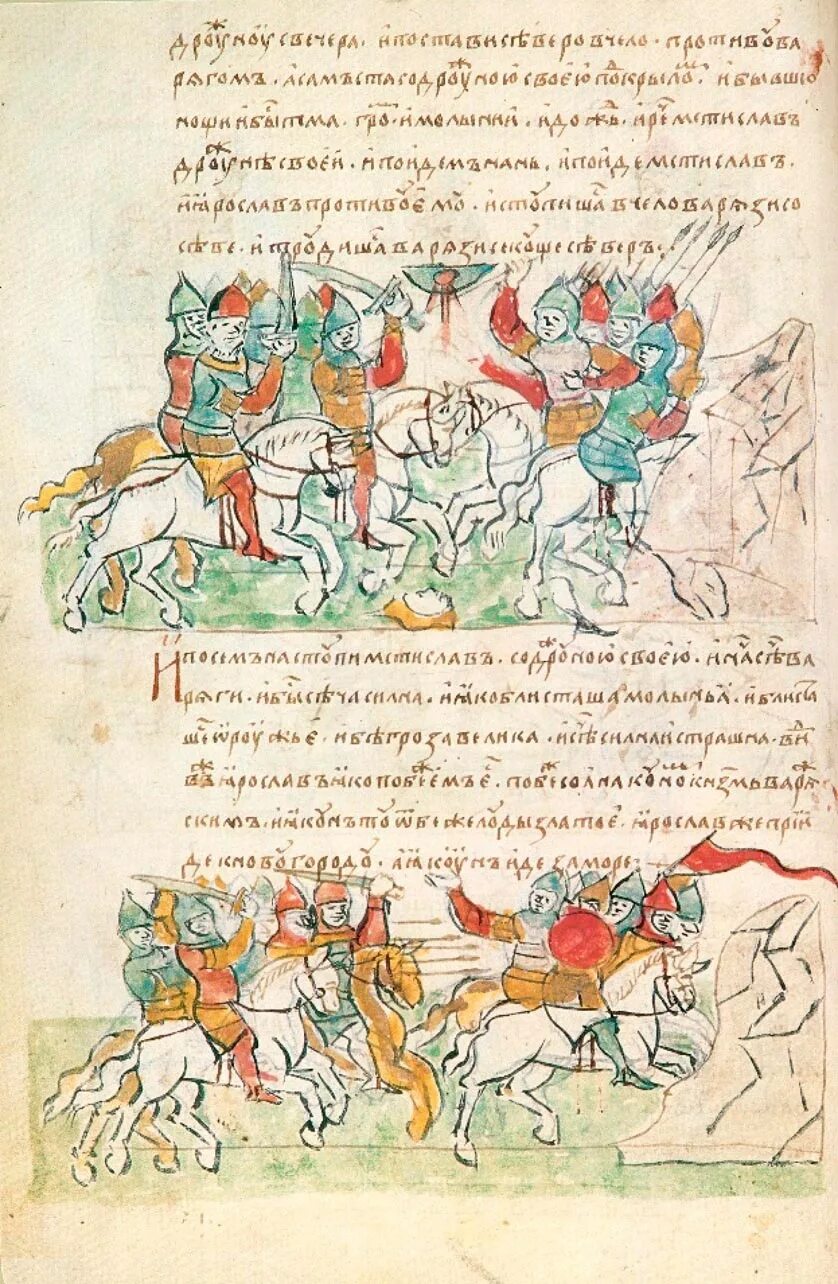 дроужиноу свечера · и постави сѣверо в чело · противоу ва
рягомъ · а самъ ста со дроужиною своею по крылома · и бывши
нощи и бысть тма · громъ · и молънии · и дождь · и рече мстиславъ
дроужинѣ своей · и поидемъ на нь · и поиде мстиславъ ·
и ꙗрославъ противоу емоу · и стоупиша в чело варязи со
сѣвером · и троудишася варязи секоуще сѣверъ ·
и посемъ настоупи мстиславъ · со дроужиною своею · и нача сѣщи ва
ряги · и бысть сѣча силна · и ꙗко блисташа молыньꙗ · и блиста
шесѧ ѡроужье · и бѣ гроза велика · и сѣча силна и страшна · видѣ
въ же ꙗрославъ ꙗко побѣжаемъ есть · побѣже со ꙗкоуномъ кнѧземь варѧж
скимъ · и ꙗкоунъ тоу ѿбеже лоуды златое · ꙗрославъ же прии
де к новоугородоу · а ꙗкоунъ иде за море